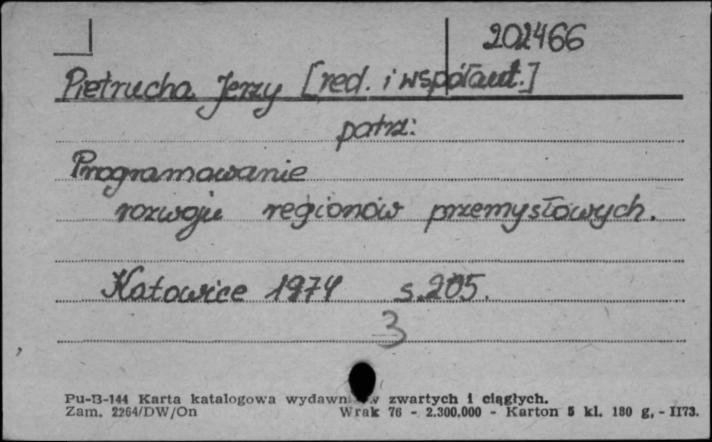 202466
Pietrucha Jerzy [red. i współaut.]
patrz:
Programowanie
rozwoju regionów przemysłowych.
Katowice 1974 s. 205.
3
Pu-B-144 Karta katalogowa zwartych i ciągłych.
Zam. 2264/DW/On Wrak 76 - 2.300.000 - Karton 5 kl. 180 g, - II73.